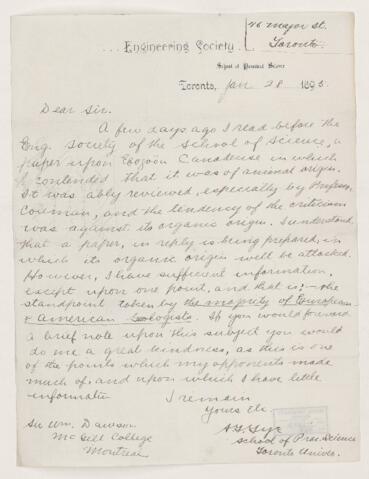 76 Major St.
Toronto.
... Engineering Society.
School of Practical Science
Toronto, Jan 28 1895.
Dear Sir.
A few days ago I read before the
Eng. Society of the School of Science, a
paper upon Eozoön Canadense in which
I contended that it was of animal origin.
It was ably reviewed, especially by Professor
Coleman, and the tendency of the criticism
was against its organic origin. I understand
that a paper, in reply is being prepared, in
which its organic origin will be attacked.
However, I have sufficient information,
except upon one point, and that is:- the
standpoint taken by the majority of European
& American Geologists. If you would forward
a brief note upon this subject you would
do me a great kindness, as this is one
of the points which my opponents made
much of, and upon which I have little
information
I remain
Yours Etc.
School of Prac. Science
Toronto Univ.
Sir Wm. Dawson
McGill College
Montreal